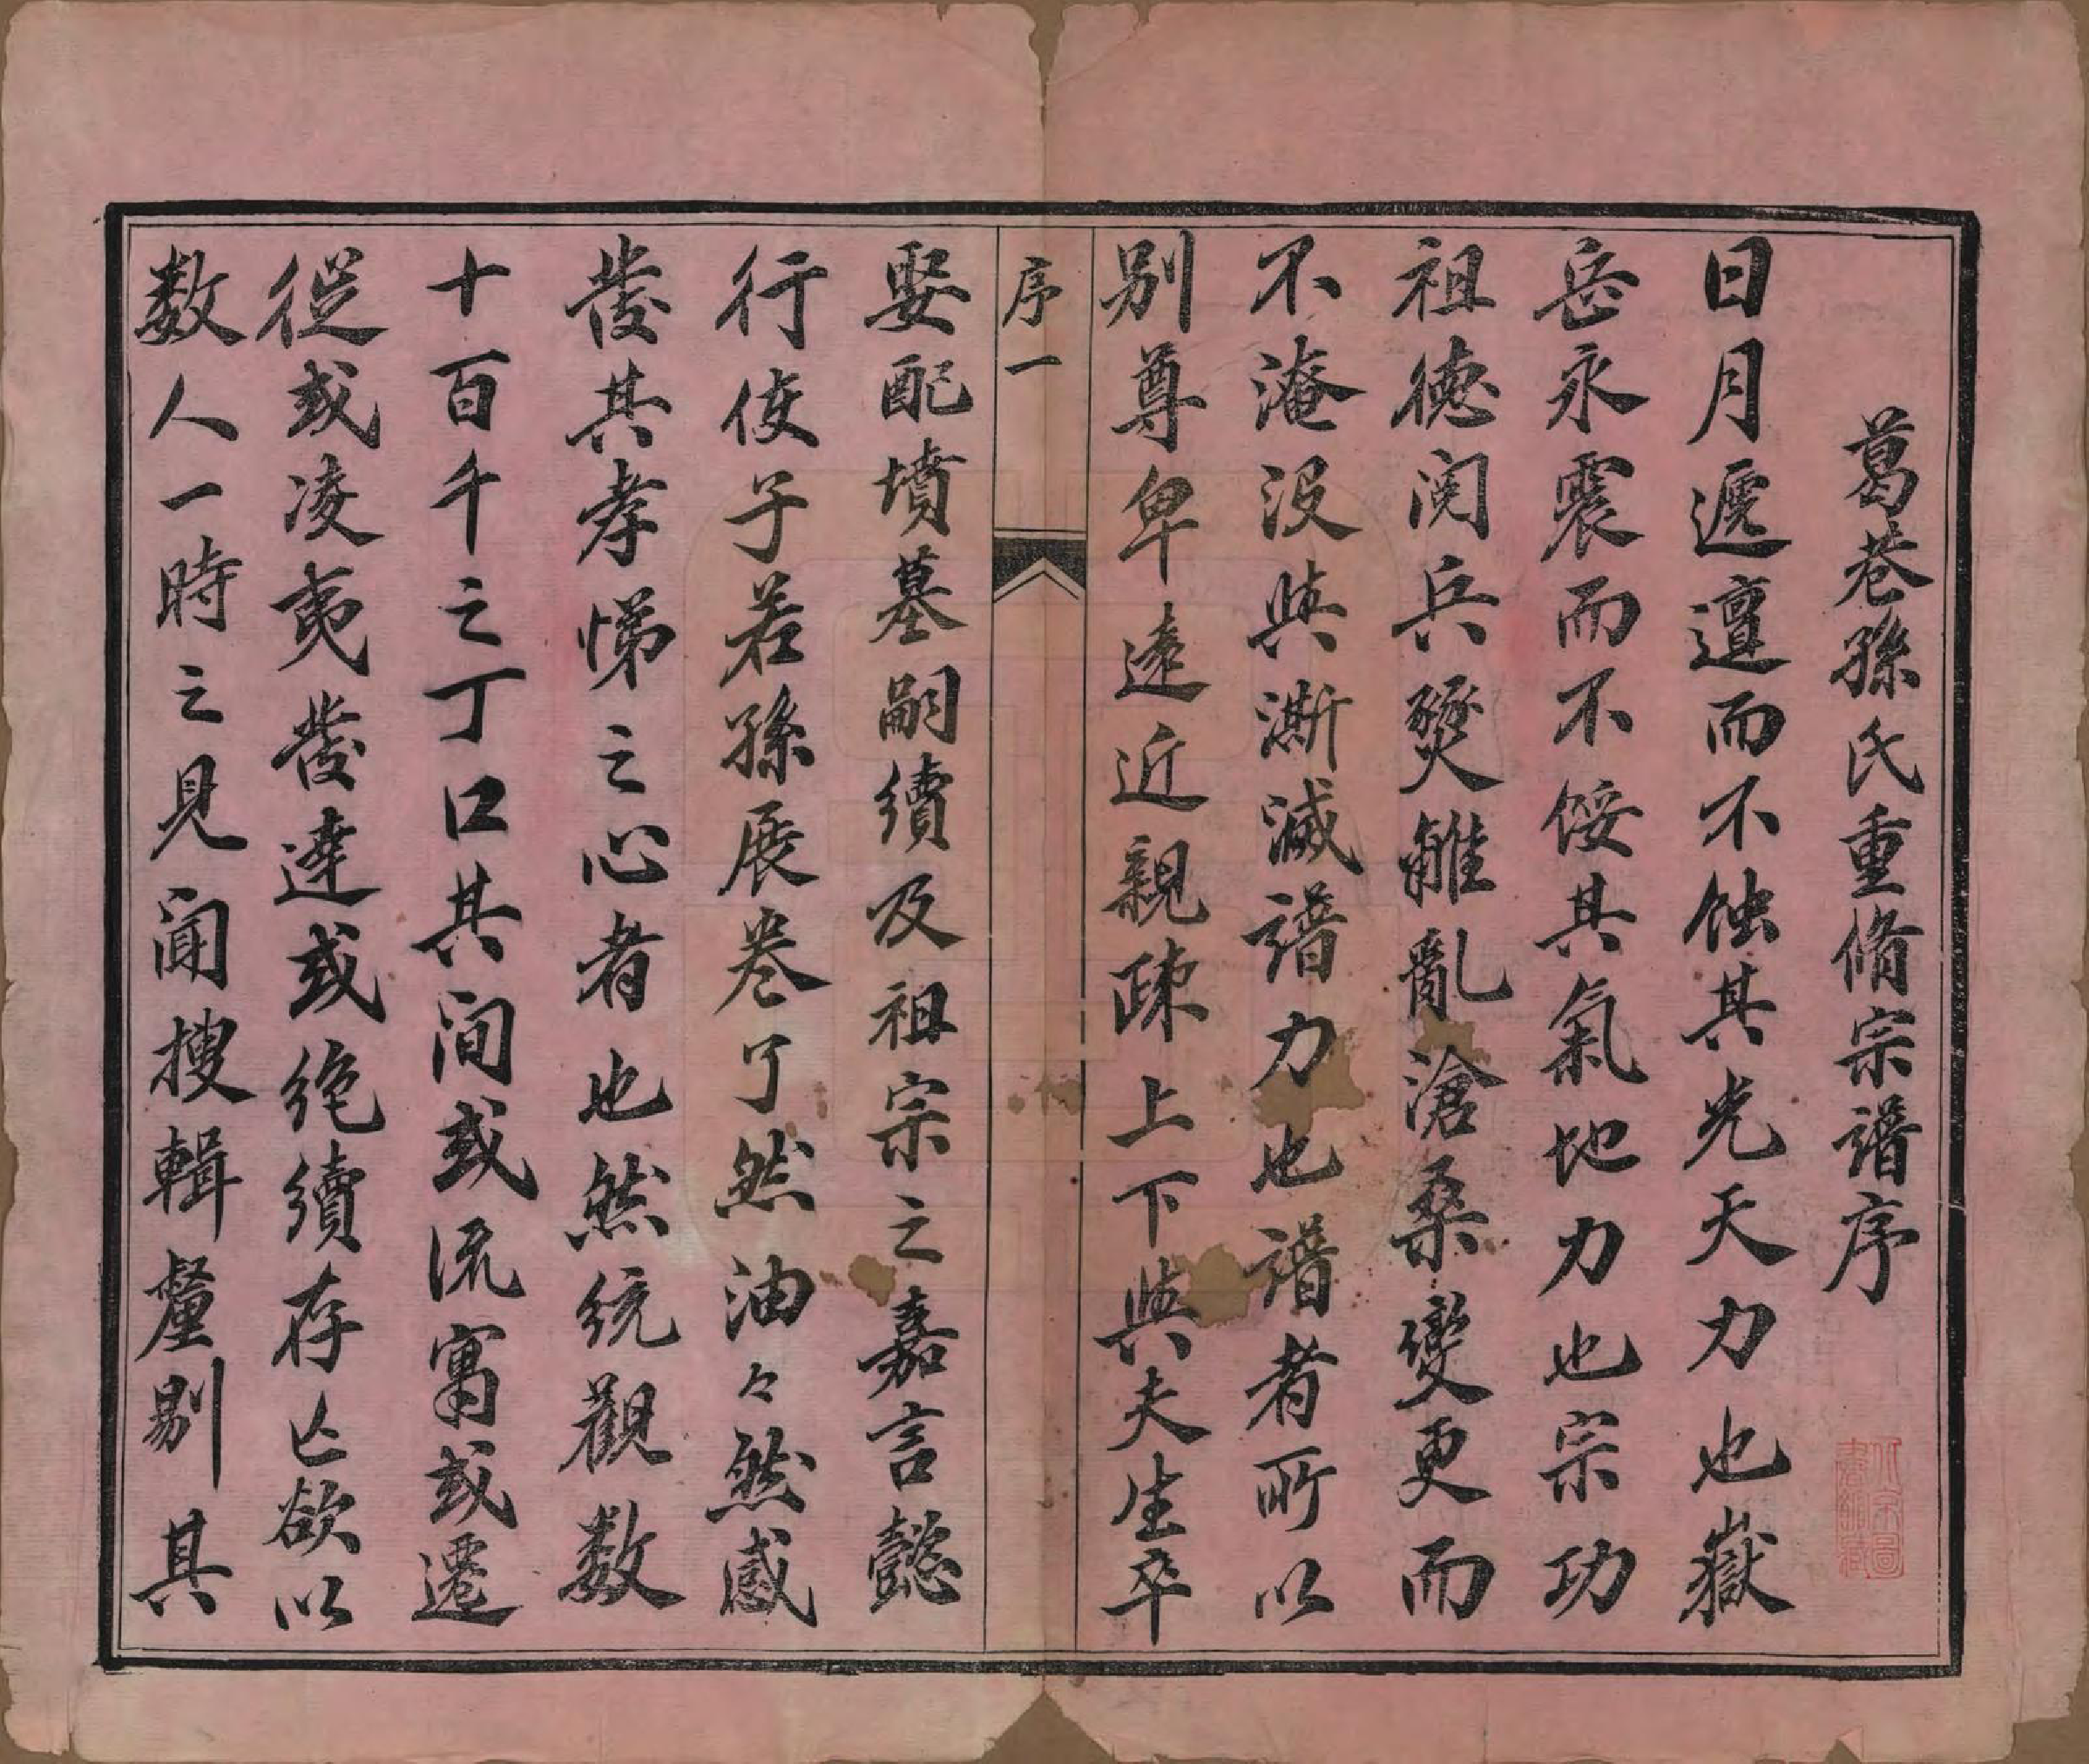 葛巷孫氏重脩宗譜序
日月遞邅而不蝕其光天力也嶽
岳永震而不餒其氣地力也宗功
祖德閱兵燹離亂滄桑變更而
不淹沒與澌滅譜力也譜者所以
別尊卑遠近親疎上下與夫生卒
序一
娶配墳墓嗣續及祖宗之嘉言懿
行使子若孫展卷了然油々然感
發其孝悌之心者也然統觀數
十百千之丁口其間或流寓或遷
從或凌夷發達或絶續存亡欲以
数人一時之見聞搜輯釐剔其